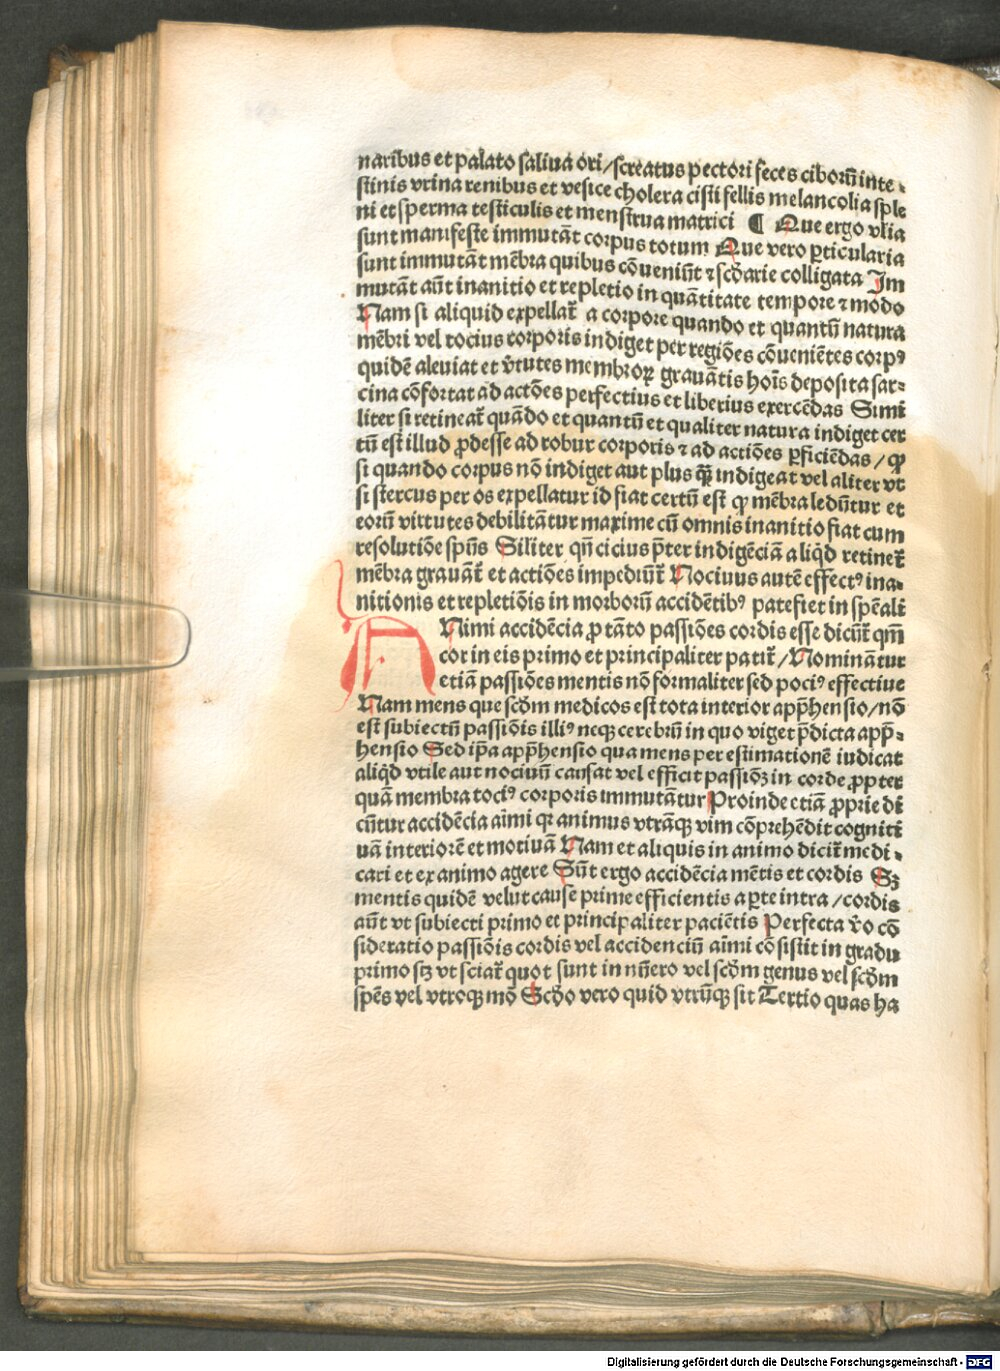 naribus et palato saliua ori/screatus pectori feces ciborū inte-
stinis vrina renibus et vesice cholera cisti fellis melancolia sple
ni et sperma testiculis et menstrua matrici ¶ Que ergo vlia
sunt manifeste immutāt corpus totum Que vero ꝑticularia
sunt immutāt mēbra quibus cōueniūt ⁊ scd̄arie colligata Im
mutāt aūt inanitio et repletio in quātitate tempore ⁊ modo
Nam si aliquid expellat̄ a corpore quando et quantū natura
mēbri vel tocius corporis indiget per regiōes cōueniētes corpꝰ
quidē aleuiat et v̄tutes membroꝝ grauātis hoīs deposita sar-
cina cōfortat ad actōes perfectius et liberius exercēdas Simi
liter si retineat̄ quādo et quantū et qualiter natura indiget cer
tū est illud ꝓdesse ad robur corporis ⁊ ad actiōes ꝑficiēdas/ꝙ
si quando corpus nō indiget aut plus ꝙ̄ indigeat vel aliter vt
si stercus per os expellatur id fiat certū est ꝙ mēbra ledūtur et
eorū virtutes debilitātur maxime cū omnis inanitio fiat cum
resolutiōe spūs Siliter qn̄ cicius p̄ter indigēciā aliq̇d retinet̄
mēbra grauāt̄ et actiōes impediūt̄ Nociuus autē effectꝰ ina-
nitionis et repletiōis in morborū accidētibꝰ patefiet in spēali
ANimi accidēcia ꝓ tāto passiōes cordis esse dicūt̄ qm̄
cor in eis primo et principaliter patit̄/Nominātur
etiā passiōes mentis nō formaliter sed pociꝰ effectiue
Nam mens que scd̄m medicos est tota interior app̄hensio/nō
est subiectū passiōis illiꝰ neqꝫ cerebrū in quo viget p̄dicta app̄-
hensio Sed ip̄a app̄hensio qua mens per estimationē iudicat
aliq̇d vtile aut nociuū causat vel efficit passiōꝫ in corde ꝓpter
quā membra tociꝰ corporis immutātur Proinde etiā ꝓprie di
cūtur accidēcia aīmi qꝛ animus vtrāqꝫ vim cōprehēdit cogniti
uā interiorē et motiuā Nam et aliquis in animo dicit̄ medi-
cari et ex animo agere Sūt ergo accidēcia mētis et cordis Sꝫ
mentis quidē velut cause prime efficientis a ꝑte intra/cordis
aūt vt subiecti primo et principaliter paciētis Perfecta v̄o cō
sideratio passiōis cordis vel accidenciū aīmi cōsistit in gradu
primo sꝫ vt sciat̄ quot sunt in nūero vel scd̄m genus vel scd̄m
spēs vel vtroqꝫ mō Scd̄o vero quid vtrūqꝫ sit Tertio quas ha
Digitalisierung gefördert durch die Deutsche Forschungsgemeinschaft - DFG